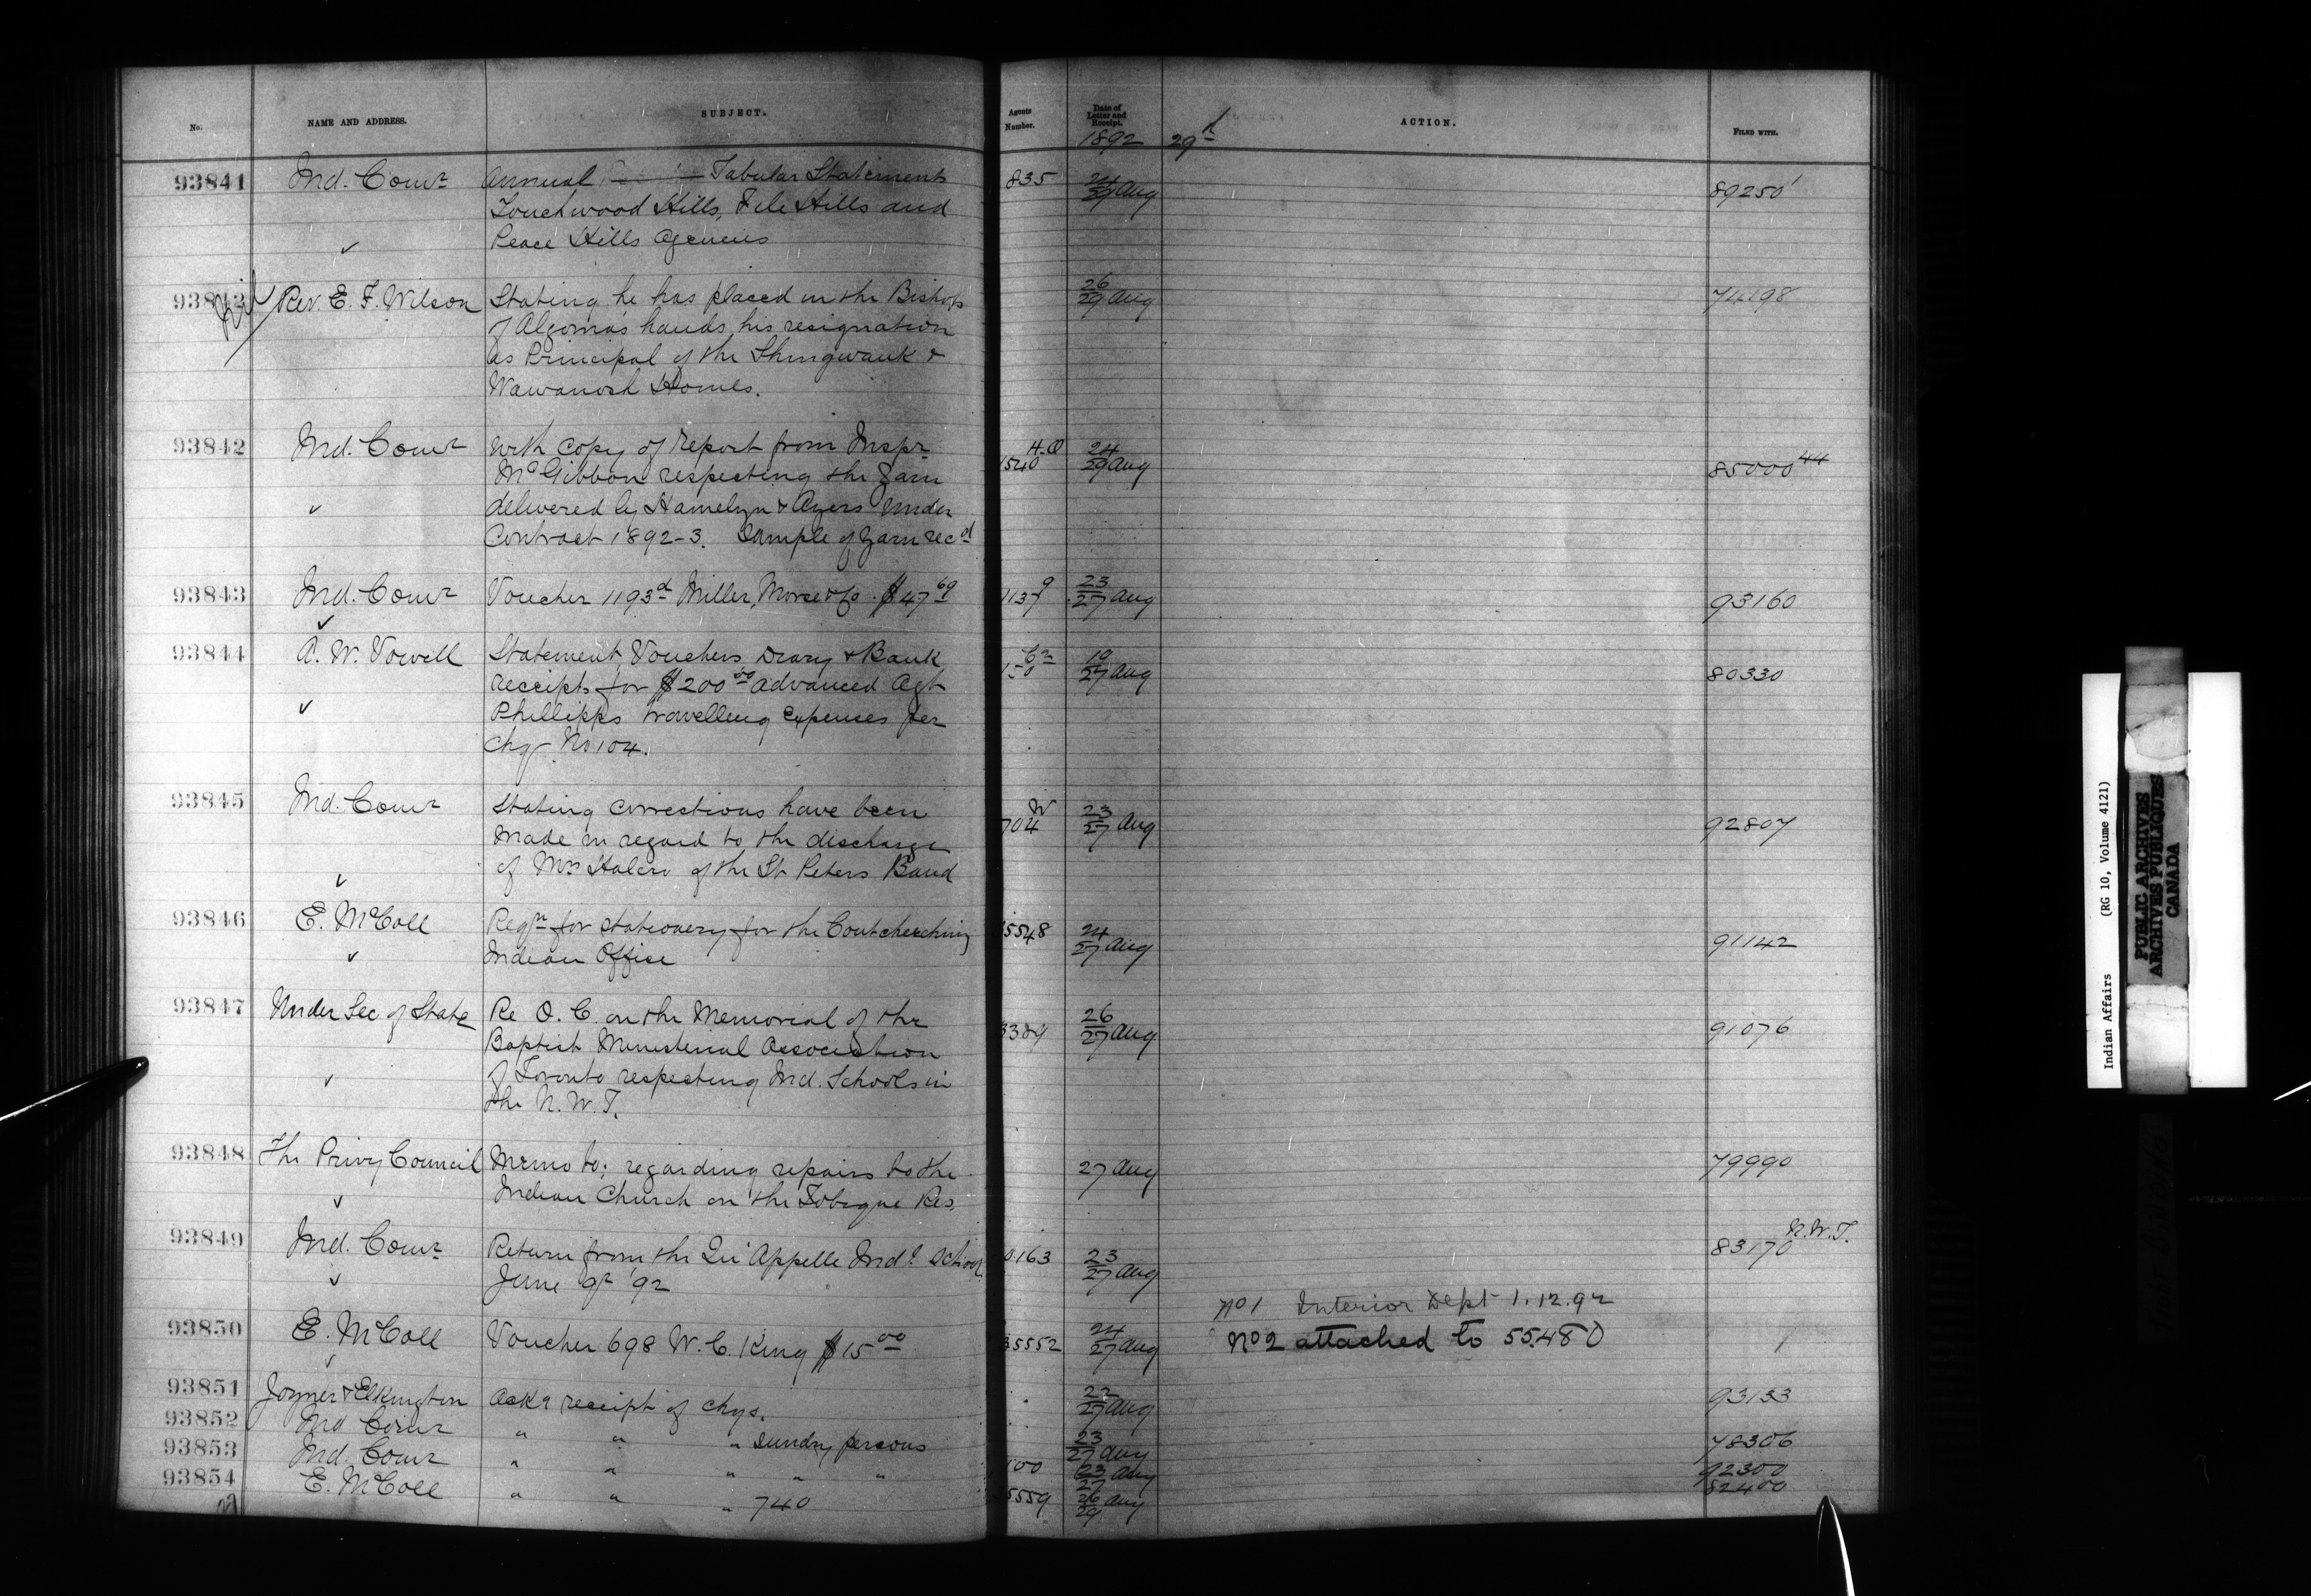 No. NAME AND ADDRESS. SUBJECT. Agents Number. Date of Letter and Receipt. ACTION. FILED WITH.
1892 29th
93841 Ind. Comr Annual Tabular Statements 835 24/29 Aug 89250
Touchwood Hills, File Hills and
✓ Peace Hills Agencies
Rev. E. F. Wilson Stating he has placed in the Bishop 26/29 Aug 74198
of Algoma's hands, his resignation
as Principal of the Shingwauk &
Wawanosh Homes.
93842 Ind. Comr With copy of report from Inspr H.Q 1540 24/29 Aug 85000 44
McGibbon respecting the yarn
✓ delivered by Hamelyn & Ayers under
Contract 1892-3. Sample of yarn recd
93843 Ind. Comr Voucher 1193d Miller, Morse & Co. $47 69 23/27 Aug 93160
✓
93844 A. W. Vowell Statement, Vouchers, Diary & Bank 19/27 Aug 80330
receipts for $200 00 advanced Agt
✓ Phillipps travelling expenses per
Chq No 104.
93845 Ind. Comr Stating corrections have been W 704 23/27 Aug 92807
made in regard to the discharge
✓ of Mrs Halcro of the St Peters Band
93846 E. McColl Reqn for stationery for the Coutcheeching 5548 24/27 Aug 91142
✓ Indian Office
93847 Under Sec of State Re O. C. on the Memorial of the 3389 26/27 Aug 91076
Baptist Ministerial Association
✓ of Toronto respecting Ind. Schools in
the N. W. T.
93848 The Privy Council Memo to: regarding repairs to the 27 Aug 79990
✓ Indian Church on the Tobique Res.
93849 Ind. Comr Return from the Qu'Appelle Indl School 0163 23/27 Aug 83170 N.W.T.
✓ June qr '92
No 1 Interior Dept 1.12.92
93850 E. McColl Voucher 698 W. C. King $15 00 35552 24/27 Aug No 2 attached to 55480
✓
93851 Joyner & Elkington Ackg receipt of chqs. 22/27 Aug 93133
93852 Ind Comr " " " Sundry persons 23/27 Aug 78306
93853 Ind. Comr " " " " " 100 23/27 Aug 92300
93854 E. McColl " " " 740 5559 26/29 Aug 82400
Indian Affairs (RG 10, Volume 4121)
PUBLIC ARCHIVES
ARCHIVES PUBLIQUES
CANADA